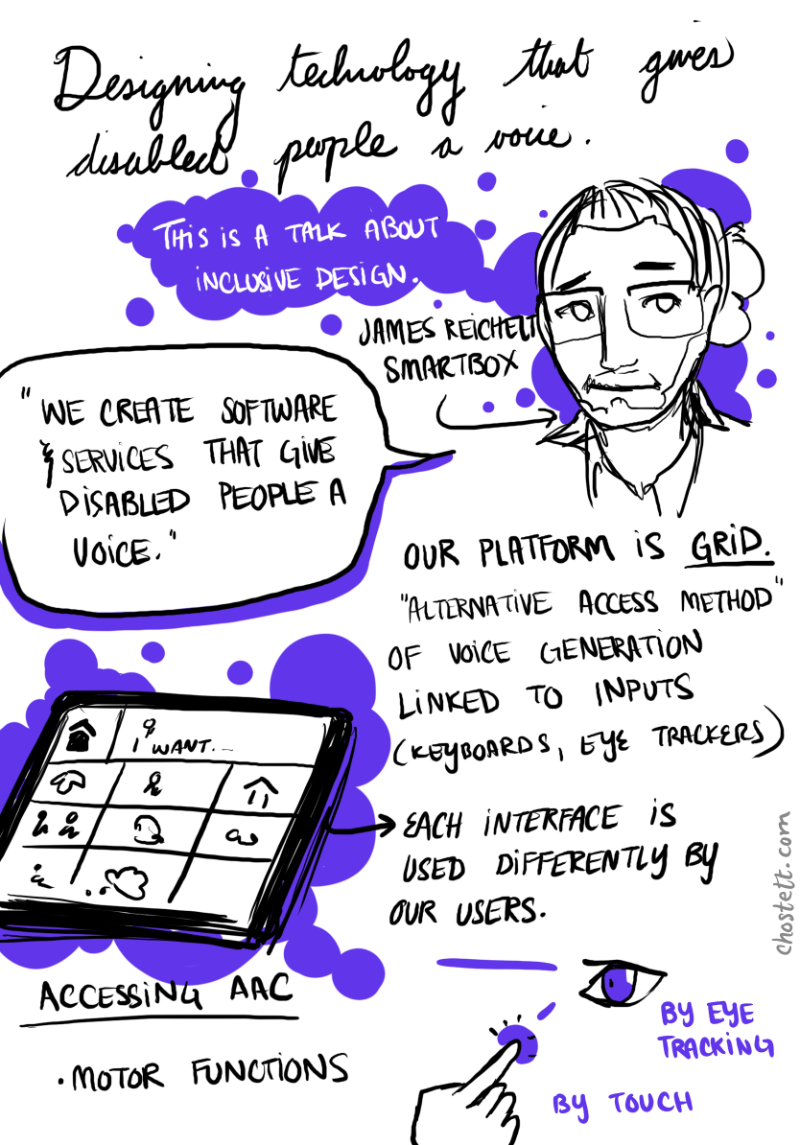 Designing technology that gives
disabled people a voice.
THIS IS A TALK ABOUT
INCLUSIVE DESIGN.
JAMES REICHELT
SMARTBOX
"WE CREATE SOFTWARE
& SERVICES THAT GIVE
DISABLED PEOPLE A
VOICE."
OUR PLATFORM IS GRID.
"ALTERNATIVE ACCESS METHOD"
OF VOICE GENERATION
LINKED TO INPUTS
(KEYBOARDS, EYE TRACKERS)
I WANT...
EACH INTERFACE IS
USED DIFFERENTLY BY
OUR USERS.
chostett.com
ACCESSING AAC
• MOTOR FUNCTIONS
BY EYE
TRACKING
BY TOUCH